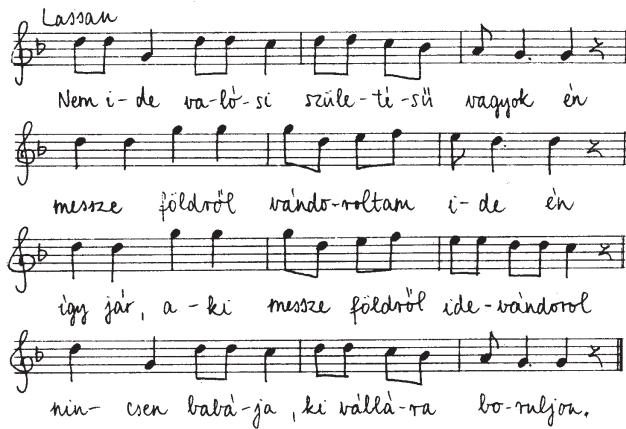 Lassan
Nem i-de va-ló-si szüle-té-sű vagyok én
messze földről vándo-roltam i-de én
így jár, a-ki messze földről ide-vándorol
nin- csen babá-ja, ki vállá-ra bo-ruljon.